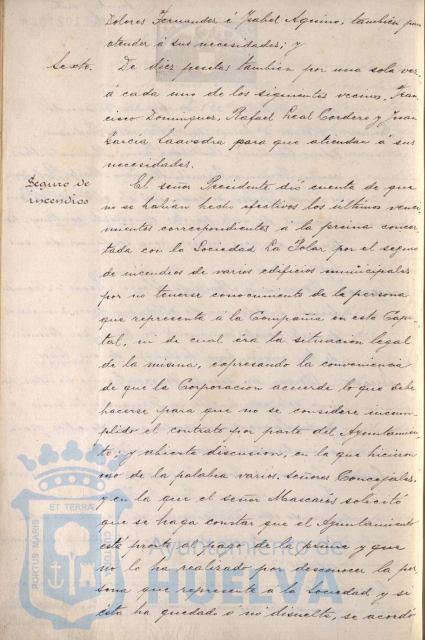 Dolores Fernandez é Isabel Aquino, tambien para
atender á sus necesidades; y
Sexto. De diez pesetas tambien por una sola vez,
á cada uno de los siguientes vecinos, Fran-
cisco Dominguez, Rafael Leal Cordero y Juan
Garcia Saavedra para que atiendan á sus
necesidades.
Seguro de
incendios
El señor Presidente dió cuenta de que
no se habian hecho efectivos los últimos venci-
mientos correspondientes á la prima concer-
tada con la Sociedad La Polar por el seguro
de incendios de varios edificios municipales
por no tenerse conocimiento de la persona
que represente á la Compañia en esta Capi-
tal, ni de cual era la situacion legal
de la misma, expresando la conveniencia
de que la Corporacion acuerde lo que debe
hacerse para que no se considere incum-
plido el contrato por parte del Ayuntamien-
to; y abierta discusion, en la que hicieron
uso de la palabra varios señores Concejales,
y en la que el señor Mascarós solicitó
que se haga constar que el Ayuntamiento
está pronto al pago de la prima y que
no lo ha realizado por desconocer la per-
sona que represente a la Sociedad y si
ésta ha quedado ó nó disuelta, se acordó
PORTUS MARIS ET TERRAE CUSTODIO
Ayuntamiento de
HUELVA